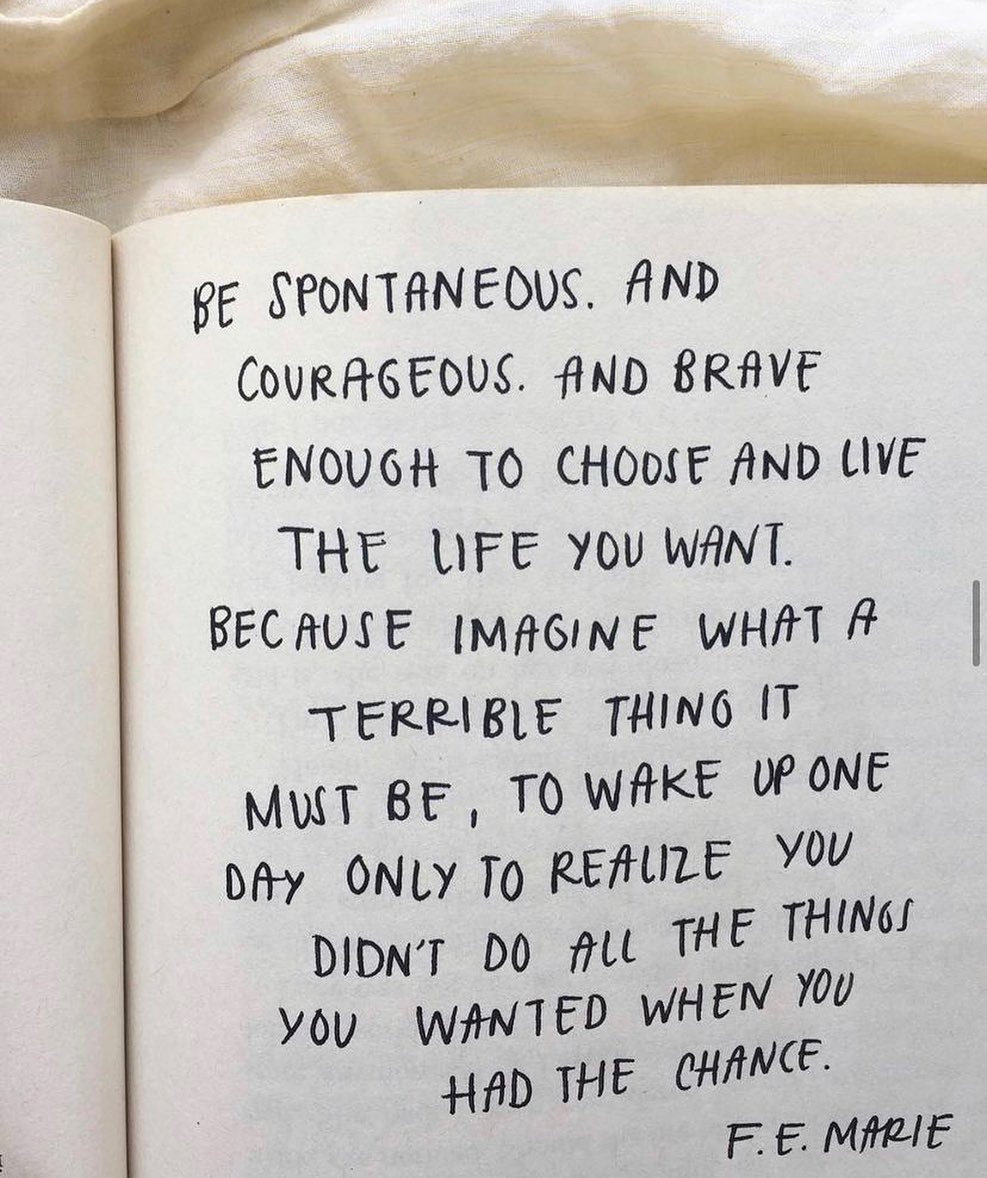 BE SPONTANEOUS. AND
COURAGEOUS. AND BRAVE
ENOUGH TO CHOOSE AND LIVE
THE LIFE YOU WANT.
BECAUSE IMAGINE WHAT A
TERRIBLE THING IT
MUST BE, TO WAKE UP ONE
DAY ONLY TO REALIZE YOU
DIDN'T DO ALL THE THINGS
YOU WANTED WHEN YOU
HAD THE CHANCE.
F.E. MARIE